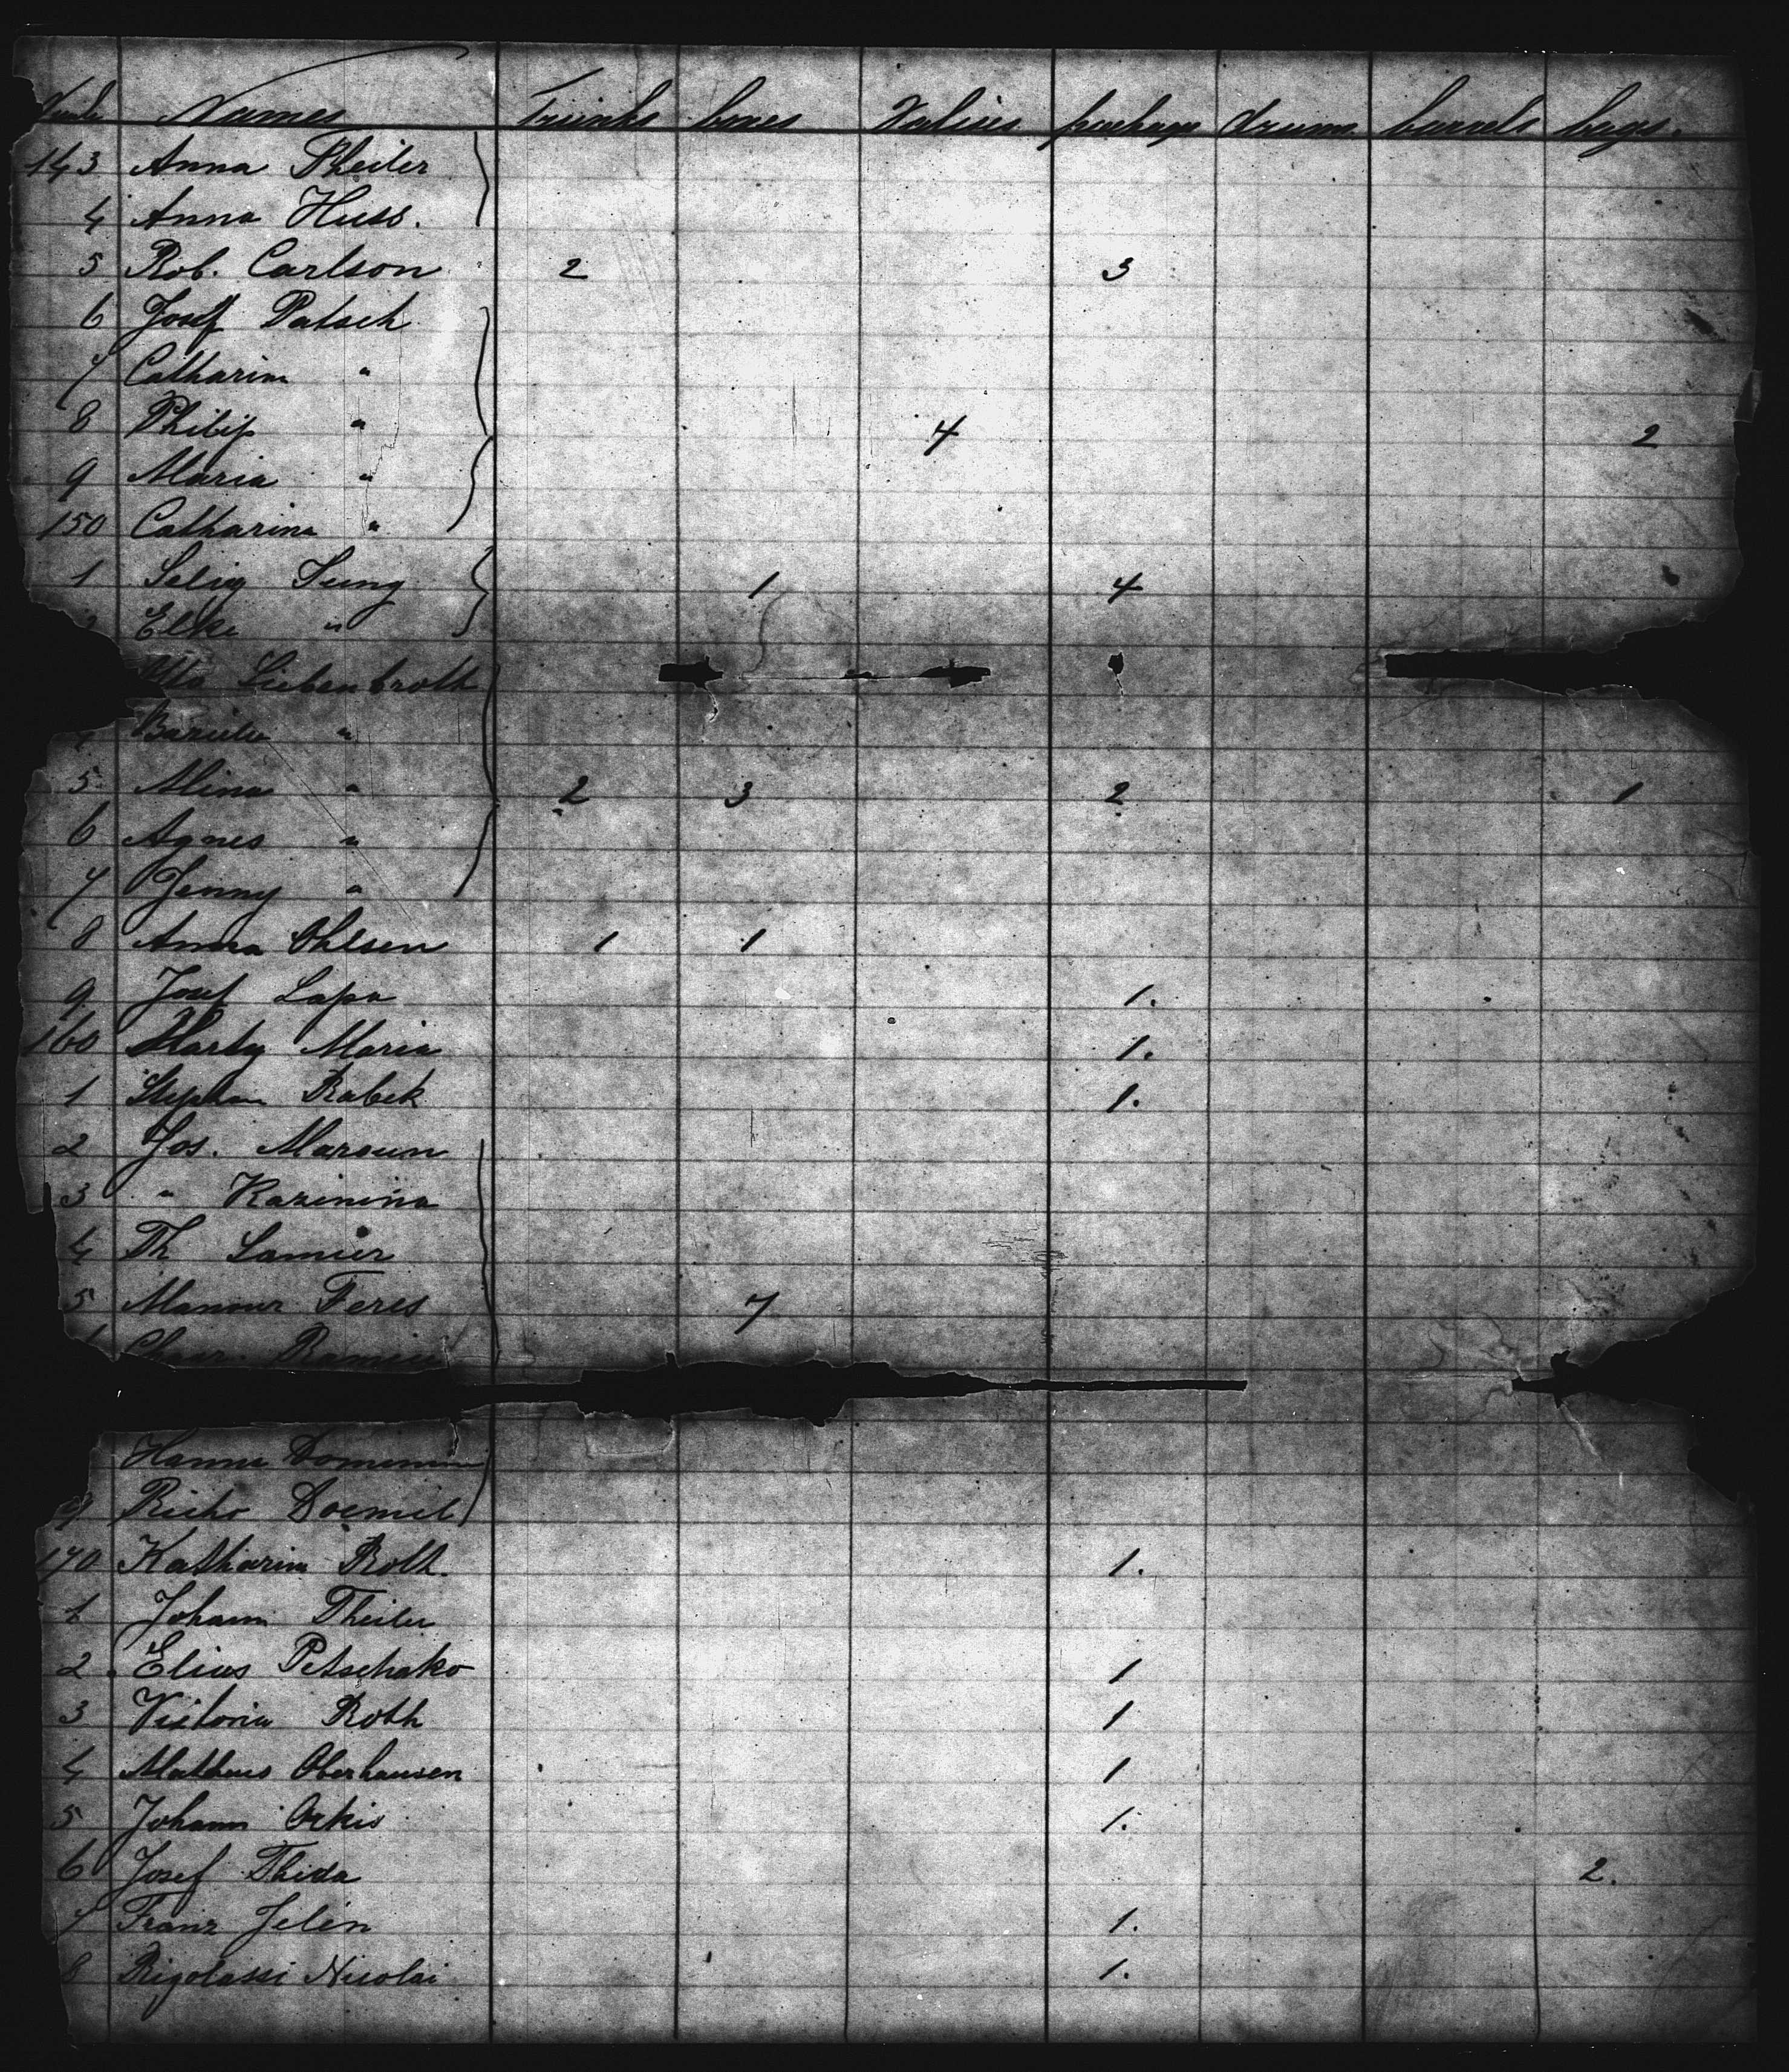 Names Trunks boxes Valises package drums barrels bags.
143 Anna Theiler
4 Anna Huss.
5 Rob. Carlson 2 3
6 Josef Patsch
7 Catharina "
8 Philip " 4 2
9 Maria "
150 Catharina "
1 Selig Jung 1 4
Elke "
Liebenbroth
"
5 Mina " 2 3 2 1
6 Agnes "
7 Jenny "
8 Anna Ohlsen 1 1
9 Josef Lapa 1.
160 Maria 1.
1 Stephan Rabek 1.
2 Jos. Maroun
3 "
4 Th
5 Mansur Feres 7
Hanna
9 Doemil
170 Katharina Roth. 1.
1 Johann Theiler
2 Elias Petschako 1
3 Victoria Roth 1
4 Mathaus Oberhausen 1
5 Johann Orkis 1.
6 Josef 2.
7 Franz Jelen 1.
8 Rigolassi Nicolai 1.